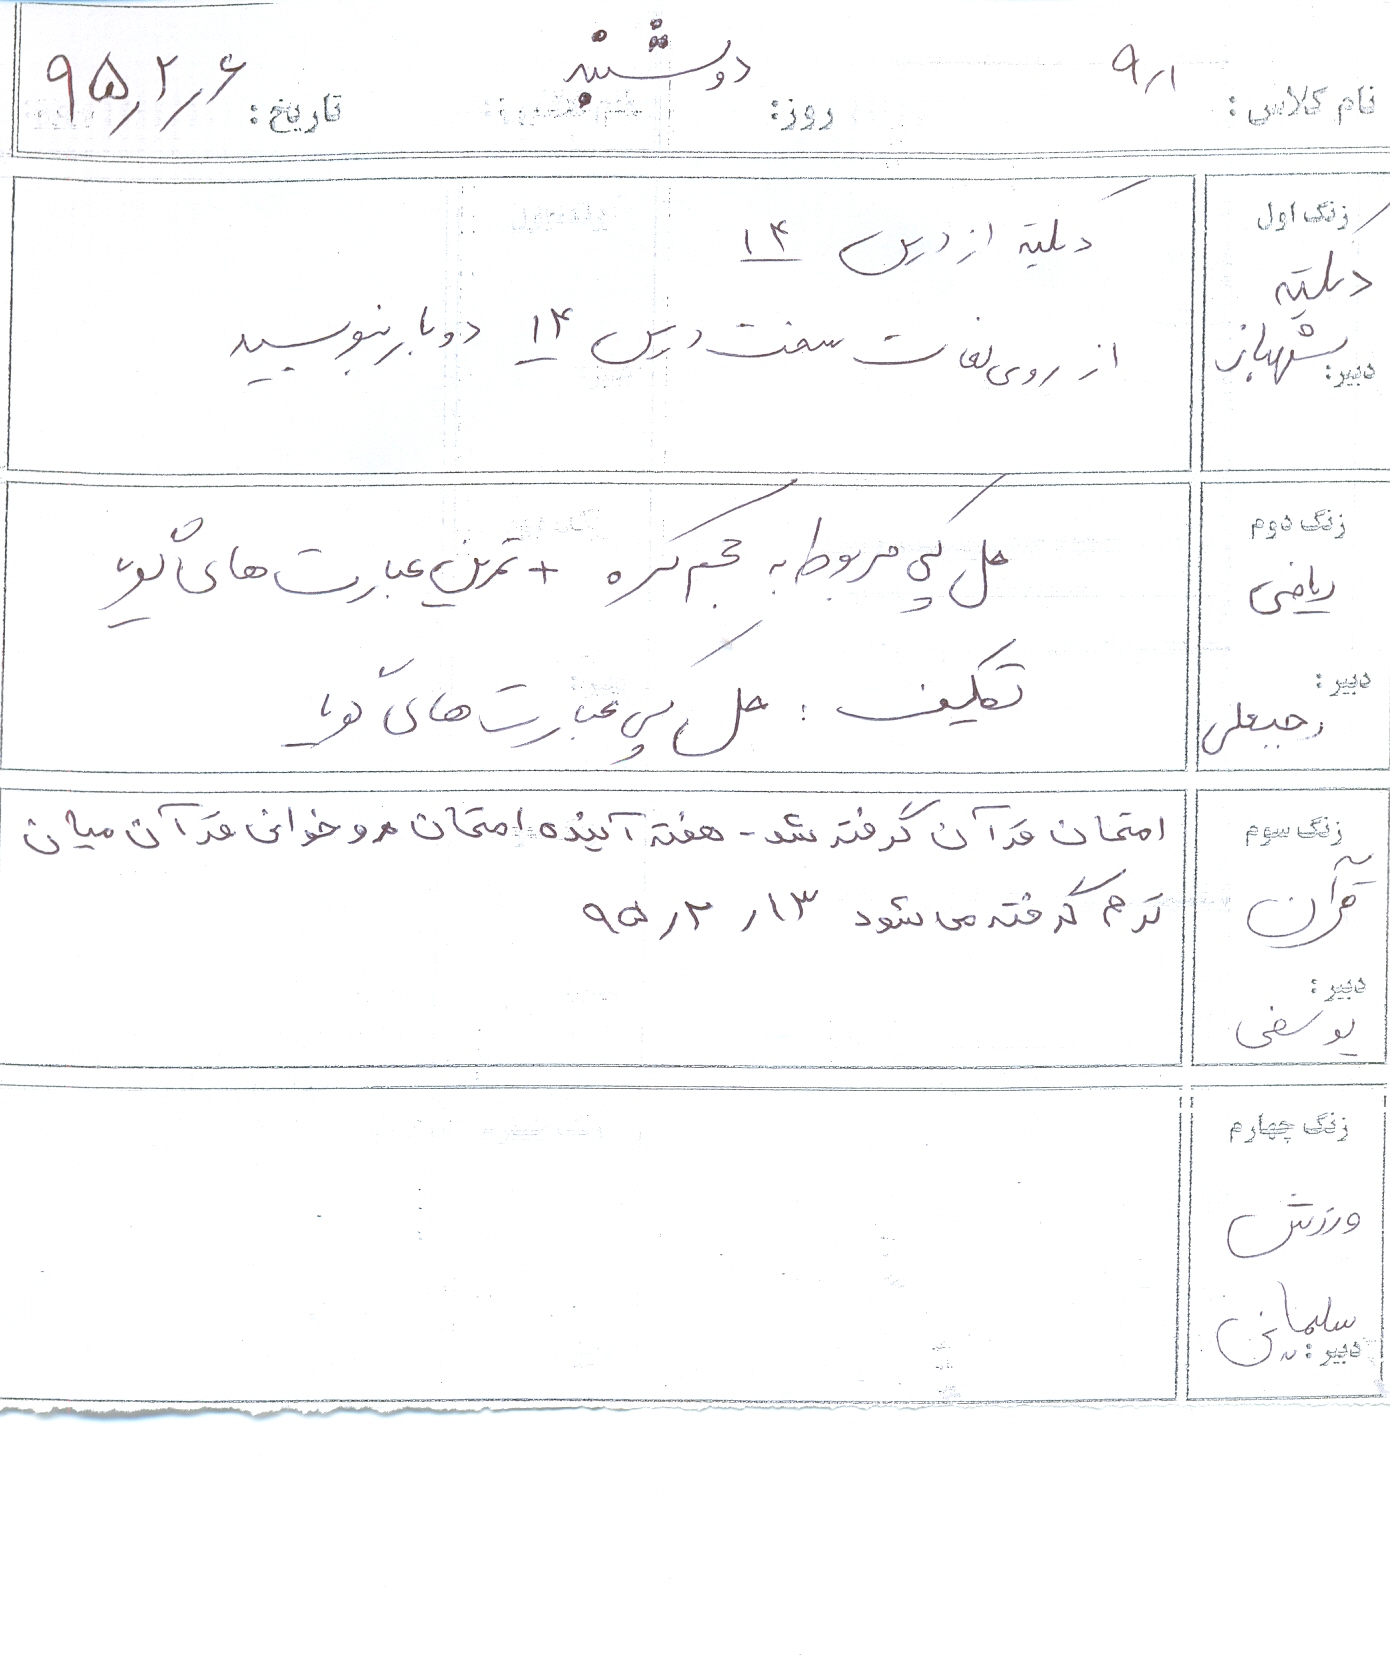 نام کلاس : ۹٫۱ روز: دوشنبه تاریخ: ۹۵٫۲٫۶
زنگ اول
دیکته
شهباز
دبیر:
دیکته از درس ۱۴
از روی لغات سخت درس ۱۴ دو بار بنویسید
زنگ دوم
ریاضی
دبیر:
رجبعلی
حل پلی مربوط به حجم کره + تمرین عبارت های گویا
تکلیف : حل پلی عبارت های گویا
زنگ سوم
قرآن
دبیر:
یوسفی
امتحان قرآن گرفته شد - هفته آینده امتحان روخوانی قرآن میان
ترم گرفته می شود ۹۵٫۲٫۱۳
زنگ چهارم
ورزش
سلیمانی
دبیر: